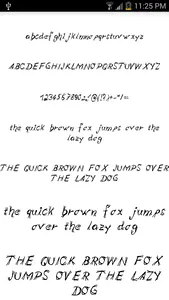 11:25 PM
abcdefghijklmnopqrstuvwxyz
ABCDEFGHIJKLMNOPQRSTUVWXYZ
the quick brown fox jumps over the
lazy dog
THE QUICK BROWN FOX JUMPS OVER
THE LAZY DOG
the quick brown fox jumps
over the lazy dog
THE QUICK BROWN FOX
JUMPS OVER THE LAZY
DOG